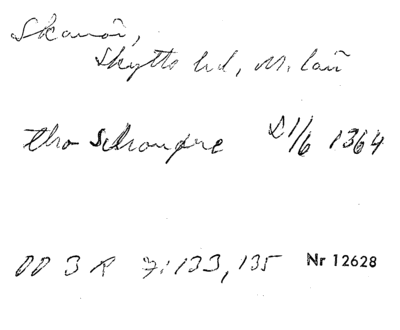 Skanör,
Skytts hd, M. län
tho Schonøre 21/6 1364
DD 3 R 7:133,135 Nr 12628